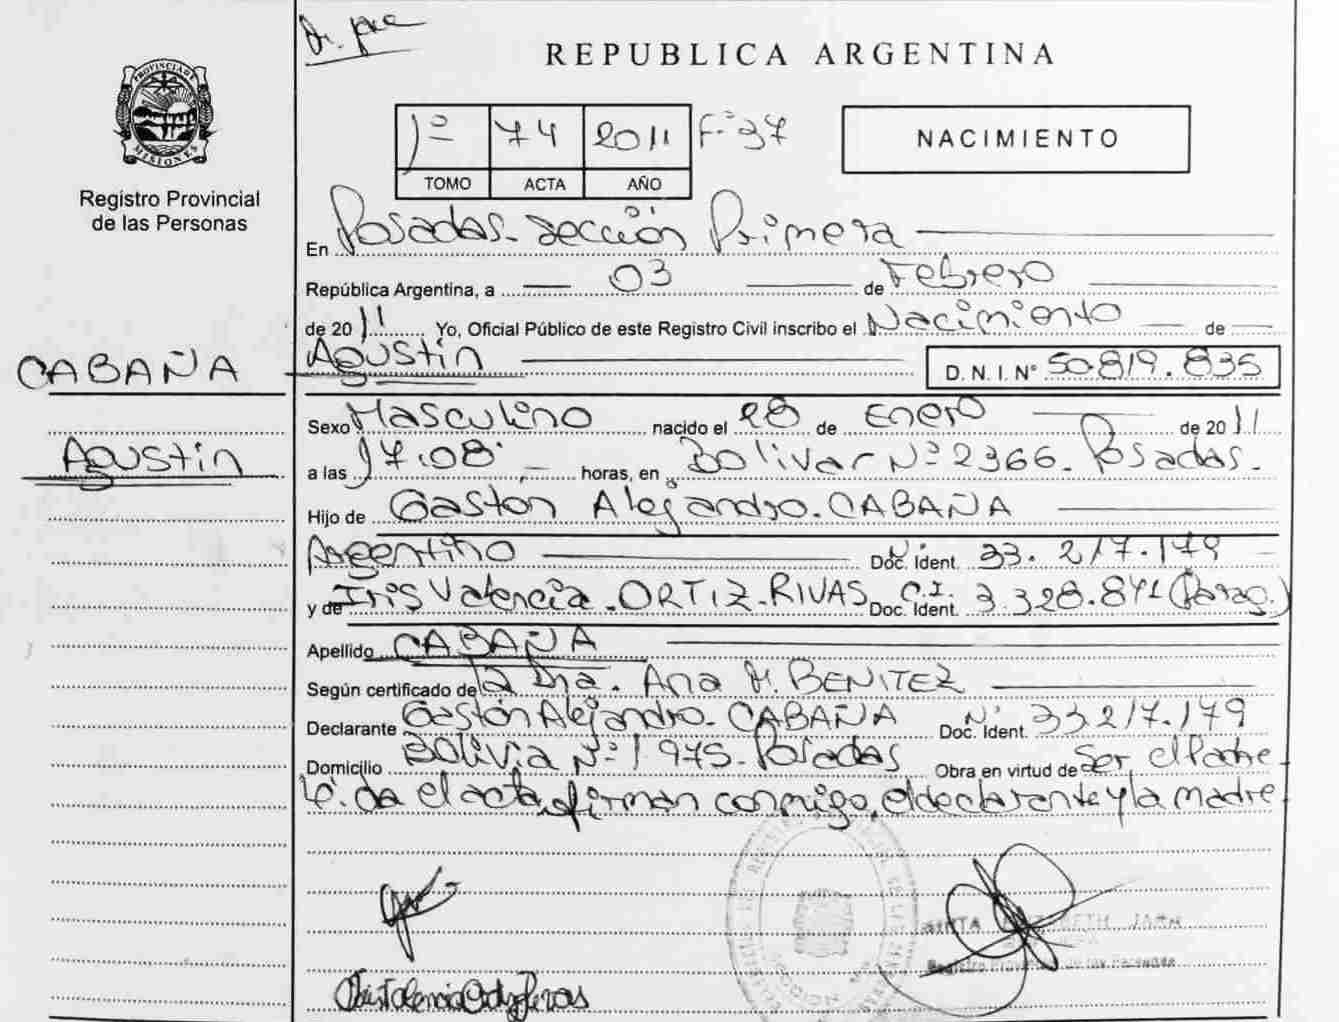 REPUBLICA ARGENTINA
PROVINCIA DE
MISIONES
Registro Provincial
de las Personas
1º 74 2011 Fº 37
TOMO ACTA AÑO
NACIMIENTO
En Posadas - Sección Primera
República Argentina, a 03 de Febrero
de 2011 Yo, Oficial Público de este Registro Civil inscribo el Nacimiento de
CABAÑA
Agustin D. N. I. Nº 50.819.835
Sexo Masculino nacido el 28 de Enero de 2011
Agustin
a las 17.08 horas, en Bolivar Nº 2366. Posadas.
Hijo de Gaston Alejandro. CABAÑA
Argentino Doc. Ident. 33.217.179
y de Iris Valencia. ORTIZ-RIVAS C.I. Doc. Ident. 3.328.871 (Parag.)
Apellido CABAÑA
Según certificado de la Dra. Ana M. BENITEZ
Declarante Gastón Alejandro. CABAÑA Nº Doc. Ident. 33.217.179
Domicilio Bolivia Nº 1.975. Posadas Obra en virtud de ser el Padre
el acta, firman conmigo, el declarante y la madre
Registro Provincial de las Personas